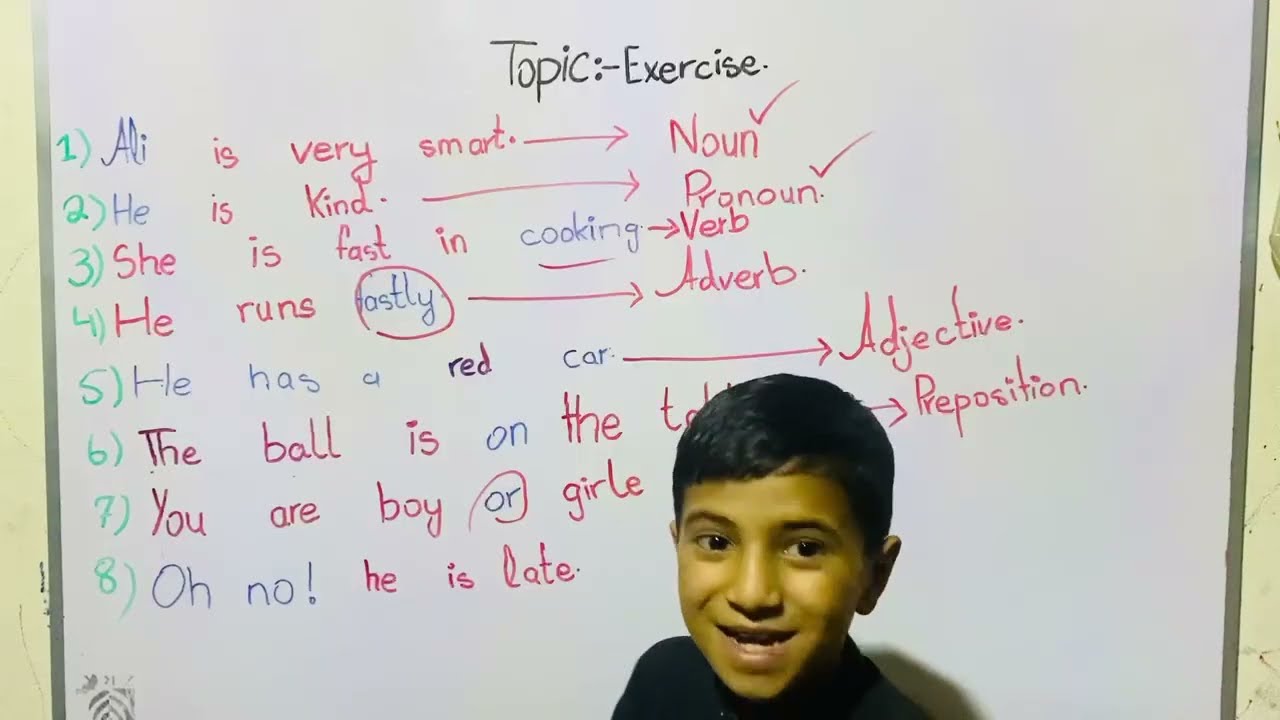 Topic:-Exercise.
1) Ali is very smart. → Noun ✓
2) He is Kind. → Pronoun. ✓
3) She is fast in cooking. → Verb
4) He runs fastly → Adverb.
5) He has a red car. → Adjective.
6) The ball is on the → Preposition.
7) You are boy or girle
8) Oh no! he is late.